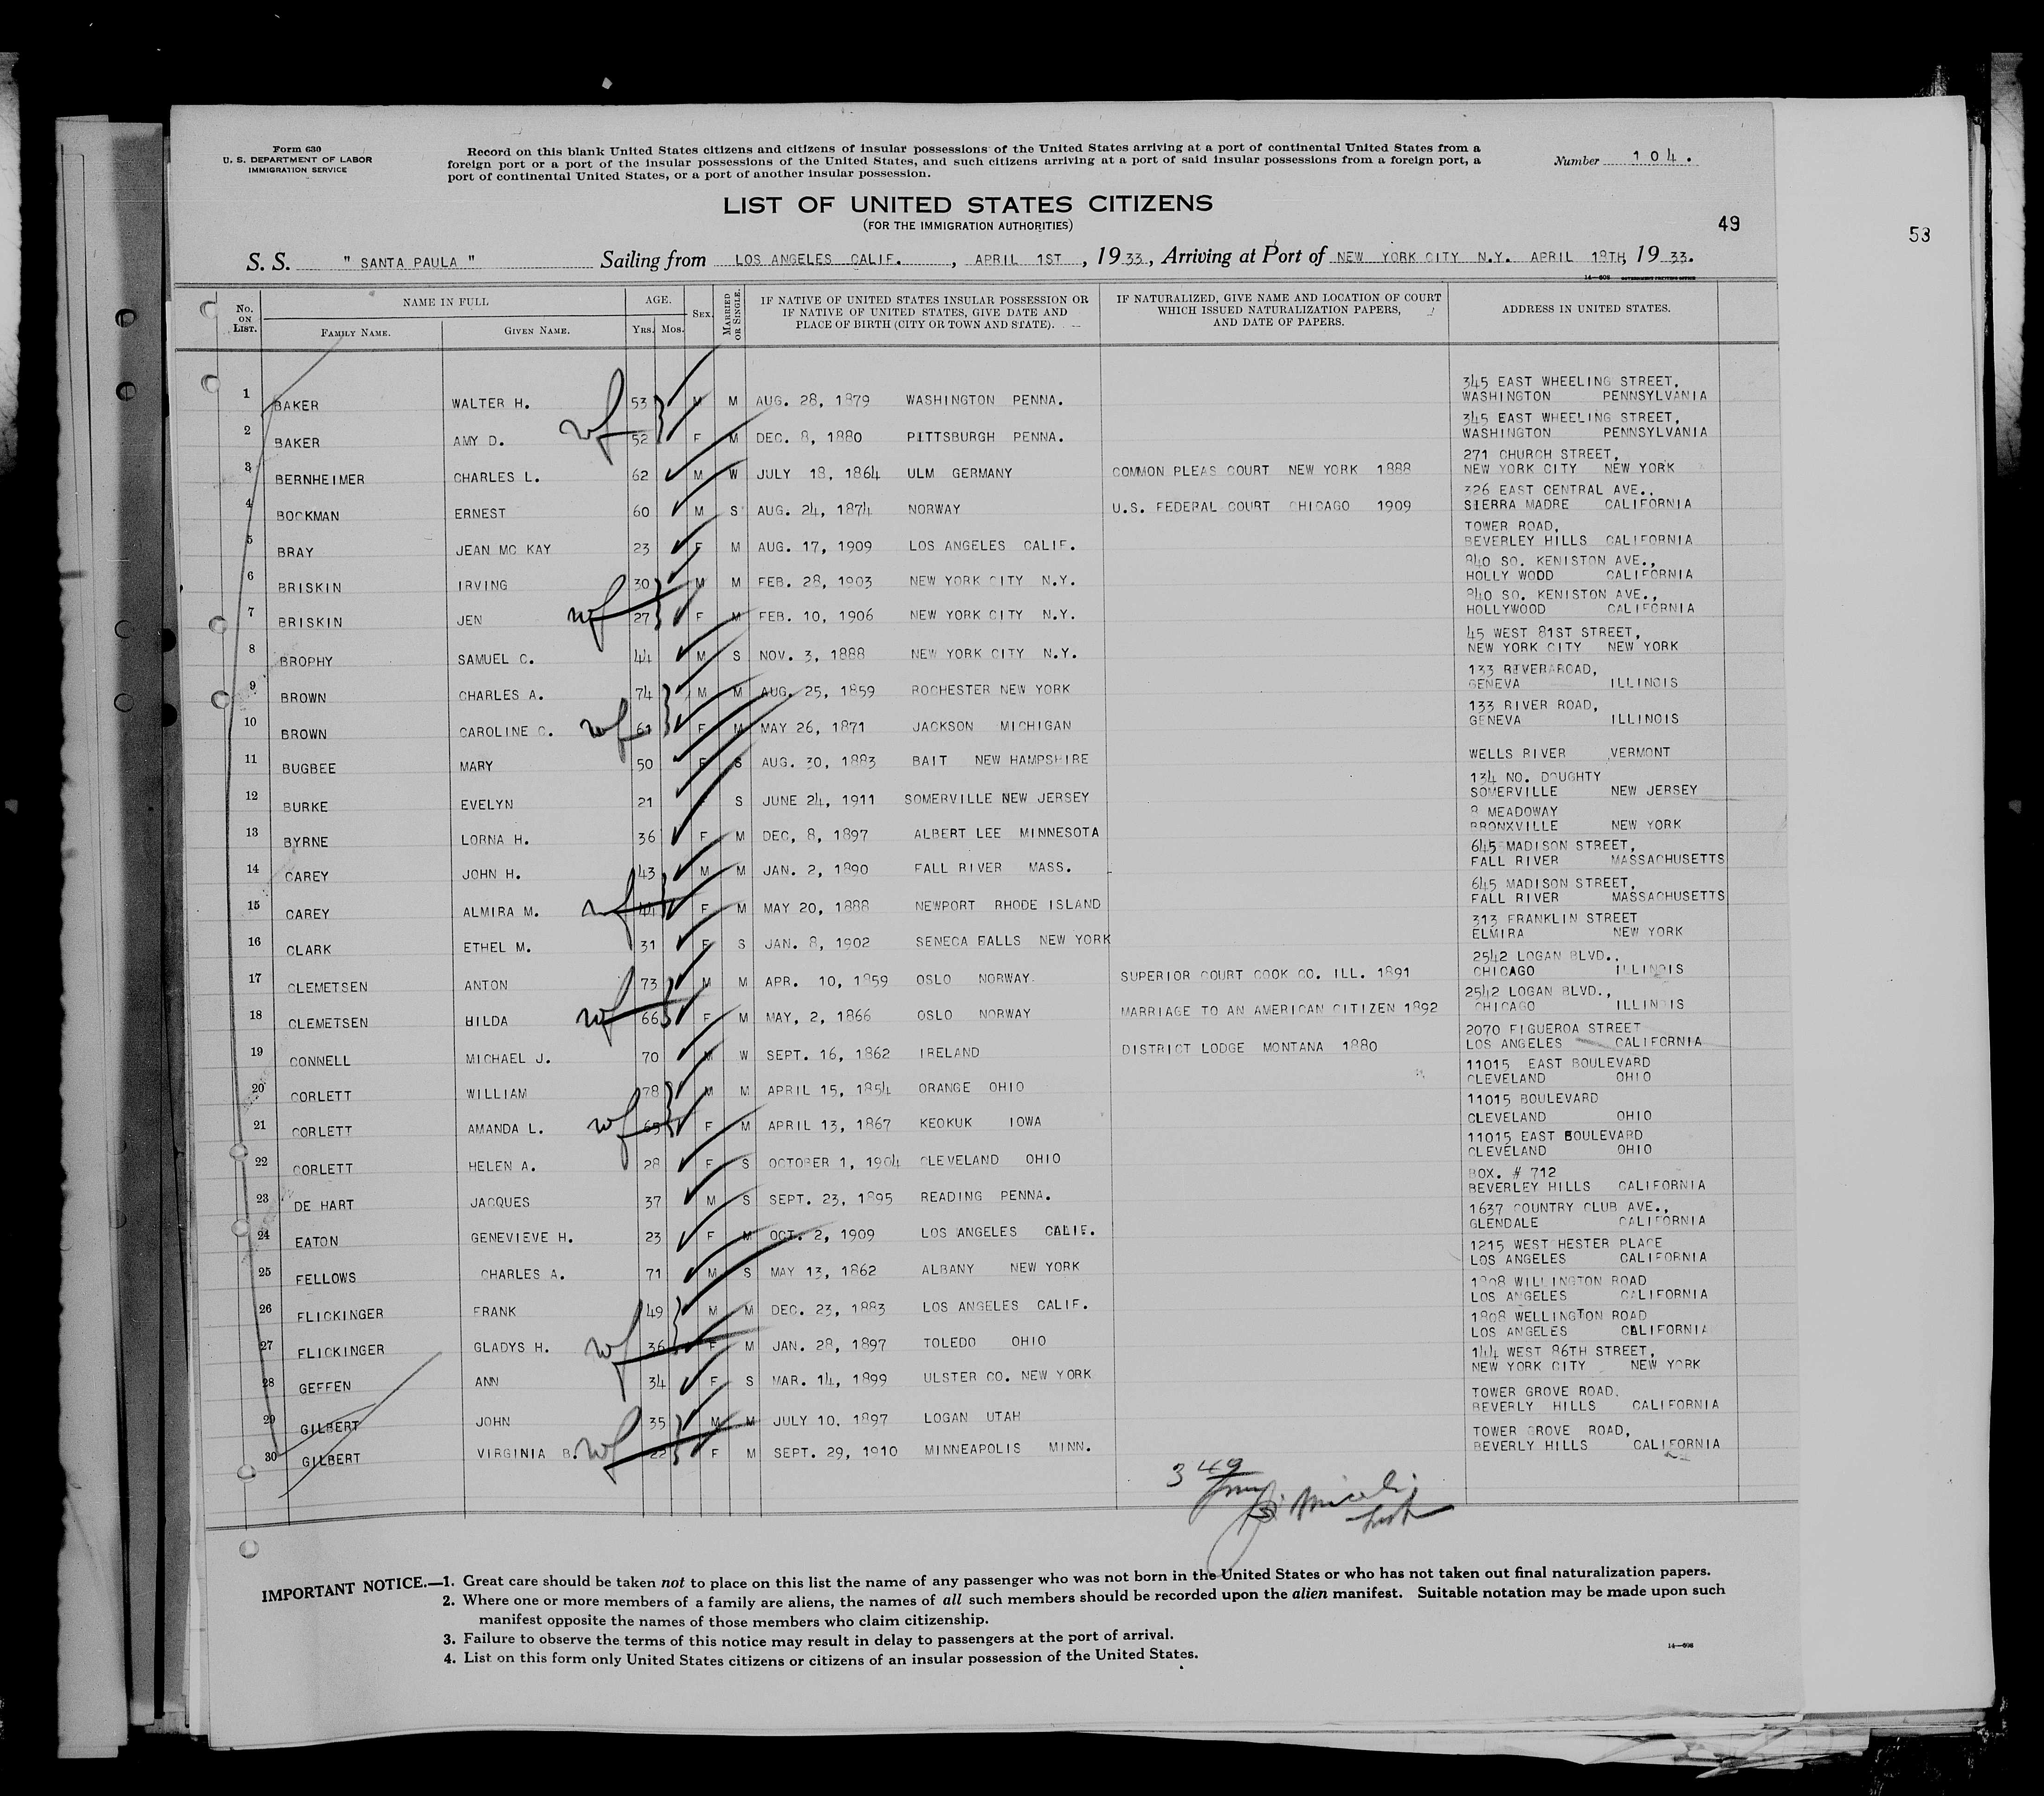 Form 630
U. S. DEPARTMENT OF LABOR
IMMIGRATION SERVICE
Record on this blank United States citizens and citizens of insular possessions of the United States arriving at a port of continental United States from a
foreign port or a port of the insular possessions of the United States, and such citizens arriving at a port of said insular possessions from a foreign port, a
port of continental United States, or a port of another insular possession.
Number 104.
LIST OF UNITED STATES CITIZENS
(FOR THE IMMIGRATION AUTHORITIES)
49
53
S. S. " SANTA PAULA " Sailing from LOS ANGELES CALIF. , APRIL 1ST , 1933, Arriving at Port of NEW YORK CITY N.Y. APRIL 18TH, 1933.
No. ON LIST. NAME IN FULL FAMILY NAME. GIVEN NAME. AGE. Yrs. Mos. SEX. MARRIED OR SINGLE. IF NATIVE OF UNITED STATES INSULAR POSSESSION OR IF NATIVE OF UNITED STATES, GIVE DATE AND PLACE OF BIRTH (CITY OR TOWN AND STATE). IF NATURALIZED, GIVE NAME AND LOCATION OF COURT WHICH ISSUED NATURALIZATION PAPERS, AND DATE OF PAPERS. ADDRESS IN UNITED STATES.
1 BAKER WALTER H. 53 M M AUG. 28, 1879 WASHINGTON PENNA. 345 EAST WHEELING STREET, WASHINGTON PENNSYLVANIA
2 BAKER AMY D. 52 F M DEC. 8, 1880 PITTSBURGH PENNA. 345 EAST WHEELING STREET, WASHINGTON PENNSYLVANIA
3 BERNHEIMER CHARLES L. 62 M W JULY 18, 1864 ULM GERMANY COMMON PLEAS COURT NEW YORK 1888 271 CHURCH STREET, NEW YORK CITY NEW YORK
4 BOCKMAN ERNEST 60 M S AUG. 24, 1874 NORWAY U.S. FEDERAL COURT CHICAGO 1909 326 EAST CENTRAL AVE., SIERRA MADRE CALIFORNIA
5 BRAY JEAN MC KAY 23 F M AUG. 17, 1909 LOS ANGELES CALIF. TOWER ROAD, BEVERLEY HILLS CALIFORNIA
6 BRISKIN IRVING 30 M M FEB. 28, 1903 NEW YORK CITY N.Y. 840 SO. KENISTON AVE., HOLLY WODD CALIFORNIA
7 BRISKIN JEN 27 F M FEB. 10, 1906 NEW YORK CITY N.Y. 840 SO. KENISTON AVE., HOLLYWOOD CALIFORNIA
8 BROPHY SAMUEL C. 44 M S NOV. 3, 1888 NEW YORK CITY N.Y. 45 WEST 81ST STREET, NEW YORK CITY NEW YORK
9 BROWN CHARLES A. 74 M M AUG. 25, 1859 ROCHESTER NEW YORK 133 RIVER ROAD, GENEVA ILLINOIS
10 BROWN CAROLINE C. 61 F M MAY 26, 1871 JACKSON MICHIGAN 133 RIVER ROAD, GENEVA ILLINOIS
11 BUGBEE MARY 50 F S AUG. 30, 1883 BAIT NEW HAMPSHIRE WELLS RIVER VERMONT
12 BURKE EVELYN 21 S JUNE 24, 1911 SOMERVILLE NEW JERSEY 134 NO. DOUGHTY SOMERVILLE NEW JERSEY
13 BYRNE LORNA H. 36 F M DEC, 8, 1897 ALBERT LEE MINNESOTA 8 MEADOWAY BRONXVILLE NEW YORK
14 CAREY JOHN H. 43 M M JAN. 2, 1890 FALL RIVER MASS. 645 MADISON STREET, FALL RIVER MASSACHUSETTS
15 CAREY ALMIRA M. 44 F M MAY 20, 1888 NEWPORT RHODE ISLAND 645 MADISON STREET, FALL RIVER MASSACHUSETTS
16 CLARK ETHEL M. 31 F S JAN. 8, 1902 SENECA FALLS NEW YORK 313 FRANKLIN STREET ELMIRA NEW YORK
17 CLEMETSEN ANTON 73 M M APR. 10, 1859 OSLO NORWAY SUPERIOR COURT COOK CO. ILL. 1891 2542 LOGAN BLVD., CHICAGO ILLINOIS
18 CLEMETSEN HILDA 66 F M MAY, 2, 1866 OSLO NORWAY MARRIAGE TO AN AMERICAN CITIZEN 1892 2542 LOGAN BLVD., CHICAGO ILLINOIS
19 CONNELL MICHAEL J. 70 M W SEPT. 16, 1862 IRELAND DISTRICT LODGE MONTANA 1880 2070 FIGUEROA STREET LOS ANGELES CALIFORNIA
20 CORLETT WILLIAM 78 M M APRIL 15, 1854 ORANGE OHIO 11015 EAST BOULEVARD CLEVELAND OHIO
21 CORLETT AMANDA L. 65 F M APRIL 13, 1867 KEOKUK IOWA 11015 BOULEVARD CLEVELAND OHIO
22 CORLETT HELEN A. 28 F S OCTOBER 1, 1904 CLEVELAND OHIO 11015 EAST BOULEVARD CLEVELAND OHIO
23 DE HART JACQUES 37 M S SEPT. 23, 1895 READING PENNA. BOX. # 712 BEVERLEY HILLS CALIFORNIA
24 EATON GENEVIEVE H. 23 F M OCT. 2, 1909 LOS ANGELES CALIF. 1637 COUNTRY CLUB AVE., GLENDALE CALIFORNIA
25 FELLOWS CHARLES A. 71 M S MAY 13, 1862 ALBANY NEW YORK 1215 WEST CHESTER PLACE LOS ANGELES CALIFORNIA
26 FLICKINGER FRANK 49 M M DEC. 23, 1883 LOS ANGELES CALIF. 1808 WILLINGTON ROAD LOS ANGELES CALIFORNIA
27 FLICKINGER GLADYS H. 36 F M JAN. 28, 1897 TOLEDO OHIO 1808 WELLINGTON ROAD LOS ANGELES CALIFORNIA
28 GEFFEN ANN 34 F S MAR. 14, 1899 ULSTER CO. NEW YORK 144 WEST 86TH STREET, NEW YORK CITY NEW YORK
29 GILBERT JOHN 35 M M JULY 10, 1897 LOGAN UTAH TOWER GROVE ROAD, BEVERLY HILLS CALIFORNIA
30 GILBERT VIRGINIA B. 22 F M SEPT. 29, 1910 MINNEAPOLIS MINN. TOWER GROVE ROAD, BEVERLY HILLS CALIFORNIA
IMPORTANT NOTICE.—1. Great care should be taken not to place on this list the name of any passenger who was not born in the United States or who has not taken out final naturalization papers.
2. Where one or more members of a family are aliens, the names of all such members should be recorded upon the alien manifest. Suitable notation may be made upon such
manifest opposite the names of those members who claim citizenship.
3. Failure to observe the terms of this notice may result in delay to passengers at the port of arrival.
4. List on this form only United States citizens or citizens of an insular possession of the United States.